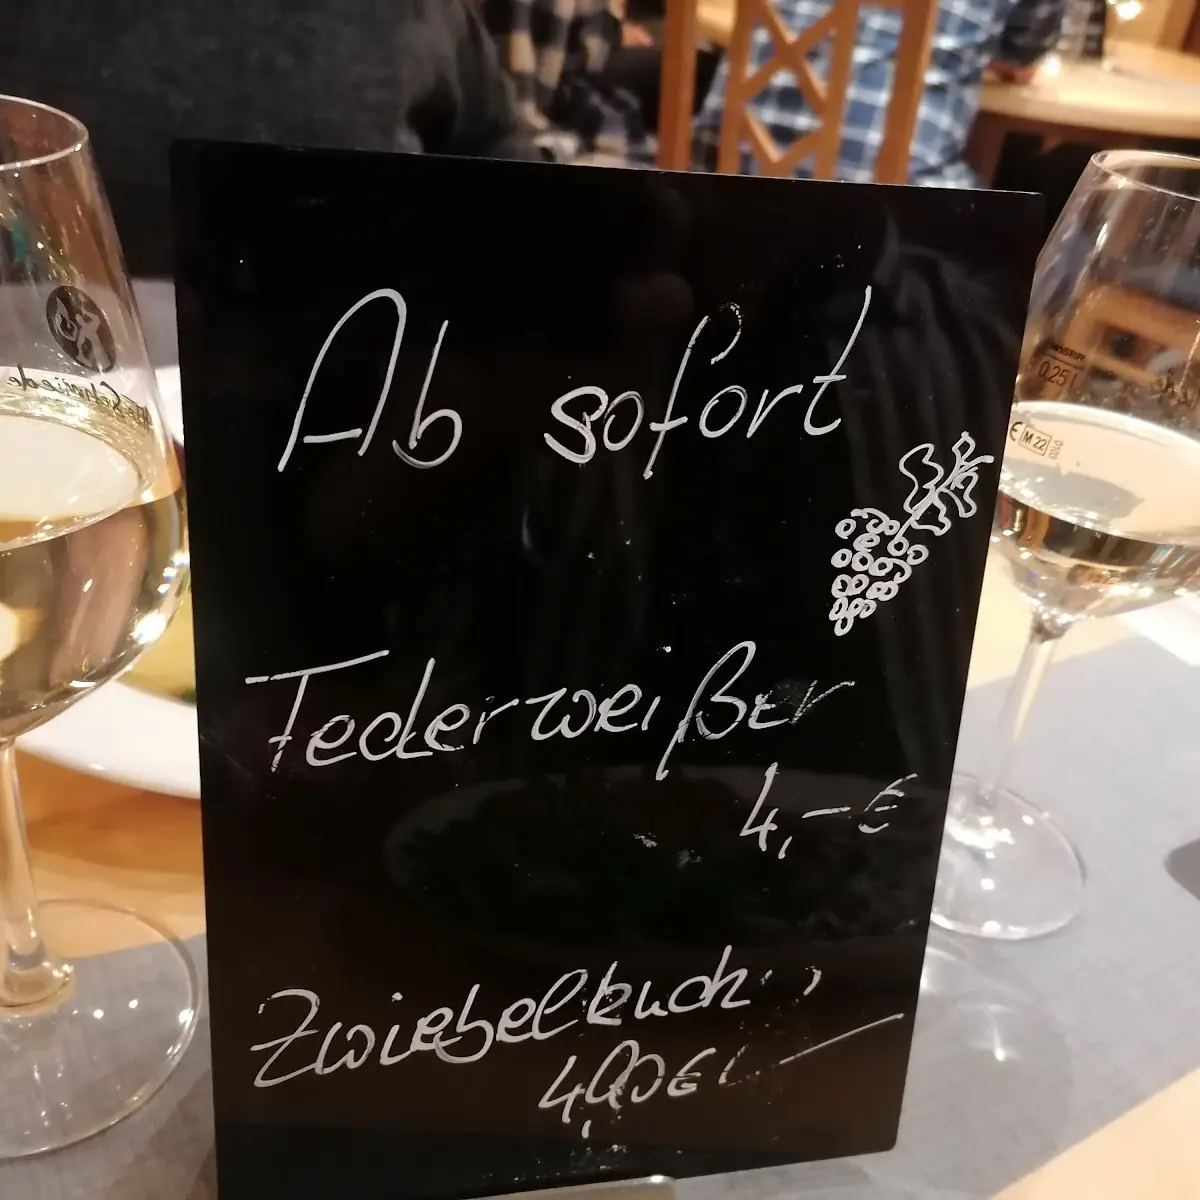 Ab sofort
Federweißer
4,-€
Zwiebelkuch
0,25 l
M22